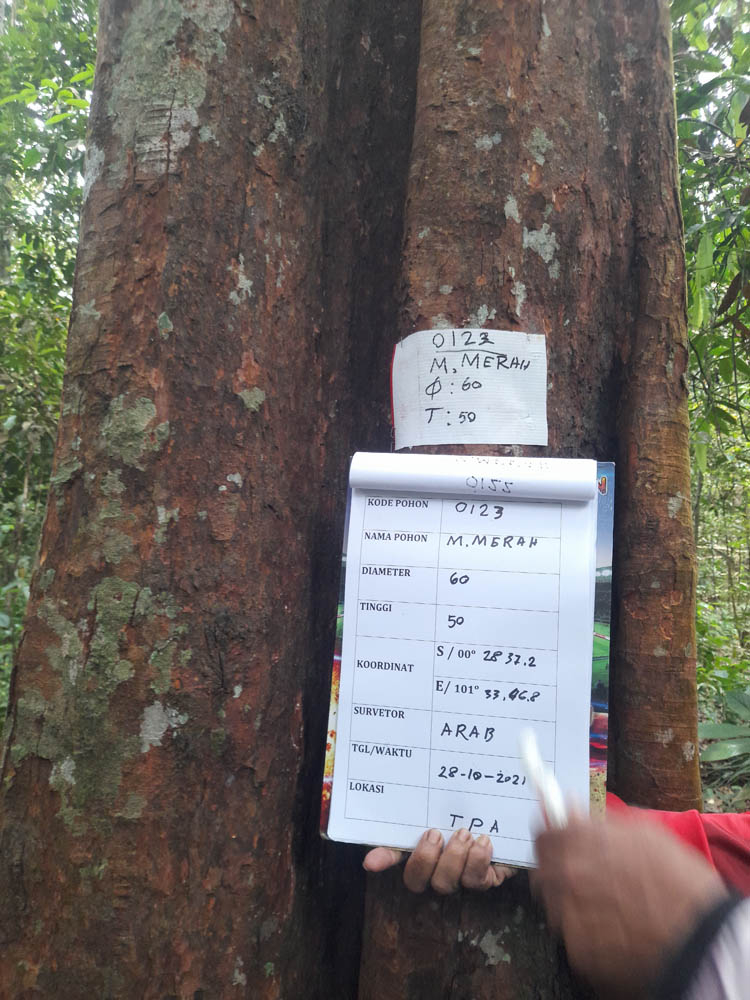 0123
M. MERAH
Φ : 60
T : 50
KODE POHON 0123
NAMA POHON M. MERAH
DIAMETER 60
TINGGI 50
KOORDINAT S / 00° 28 37.2
E/ 101° 33,46.8
SURVETOR ARAB
TGL/WAKTU 28-10-2021
LOKASI TPA